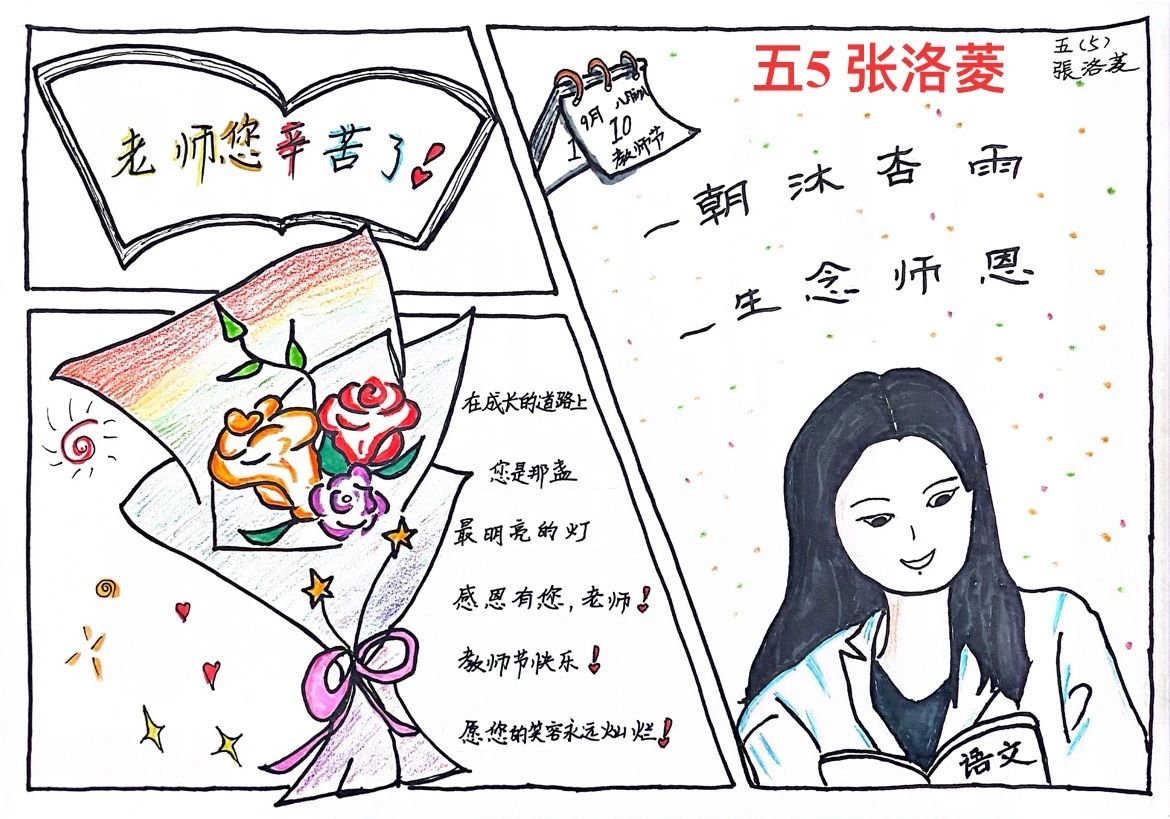 老师您辛苦了！
9月
10
教师节
1
五5 张洛菱
五(5)
張洛菱
一朝沐杏雨
一生念师恩
在成长的道路上
您是那盏
最明亮的灯
感恩有您，老师！
教师节快乐！
愿您的笑容永远灿烂！
语文